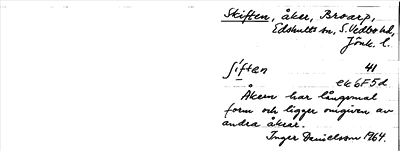 Skiften, åker, Broarp,
Edshults sn, S. Vedbo hd,
Jönk. l.
ʃiftən 41
ek 6F5d
Åkern har långsmal
form och ligger omgiven av
andra åkrar.
Inger Danielsson 1964.